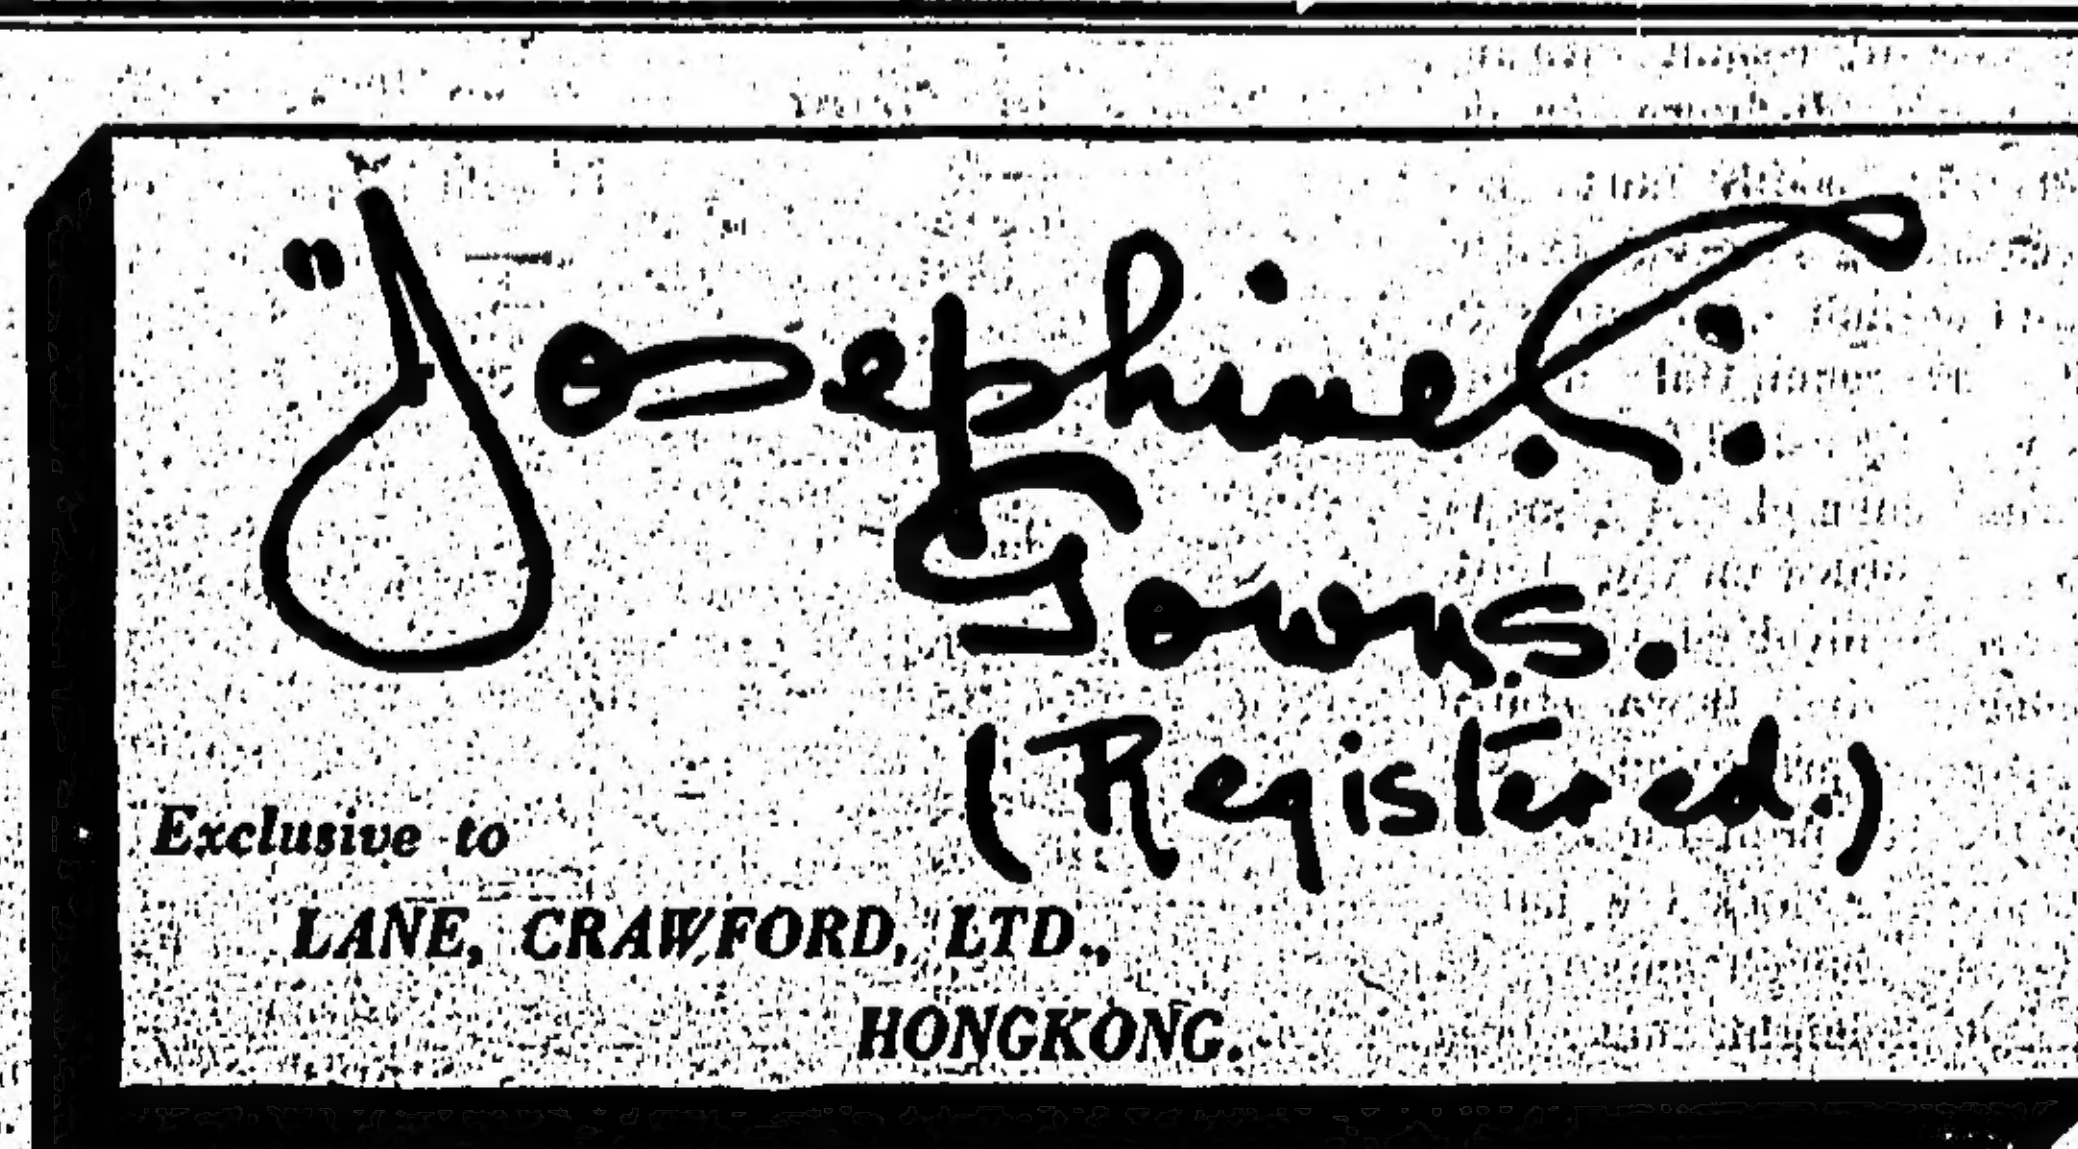 "Josephine"
Gowns.
(Registered.)
Exclusive to
LANE, CRAWFORD, LTD.,
HONGKONG.